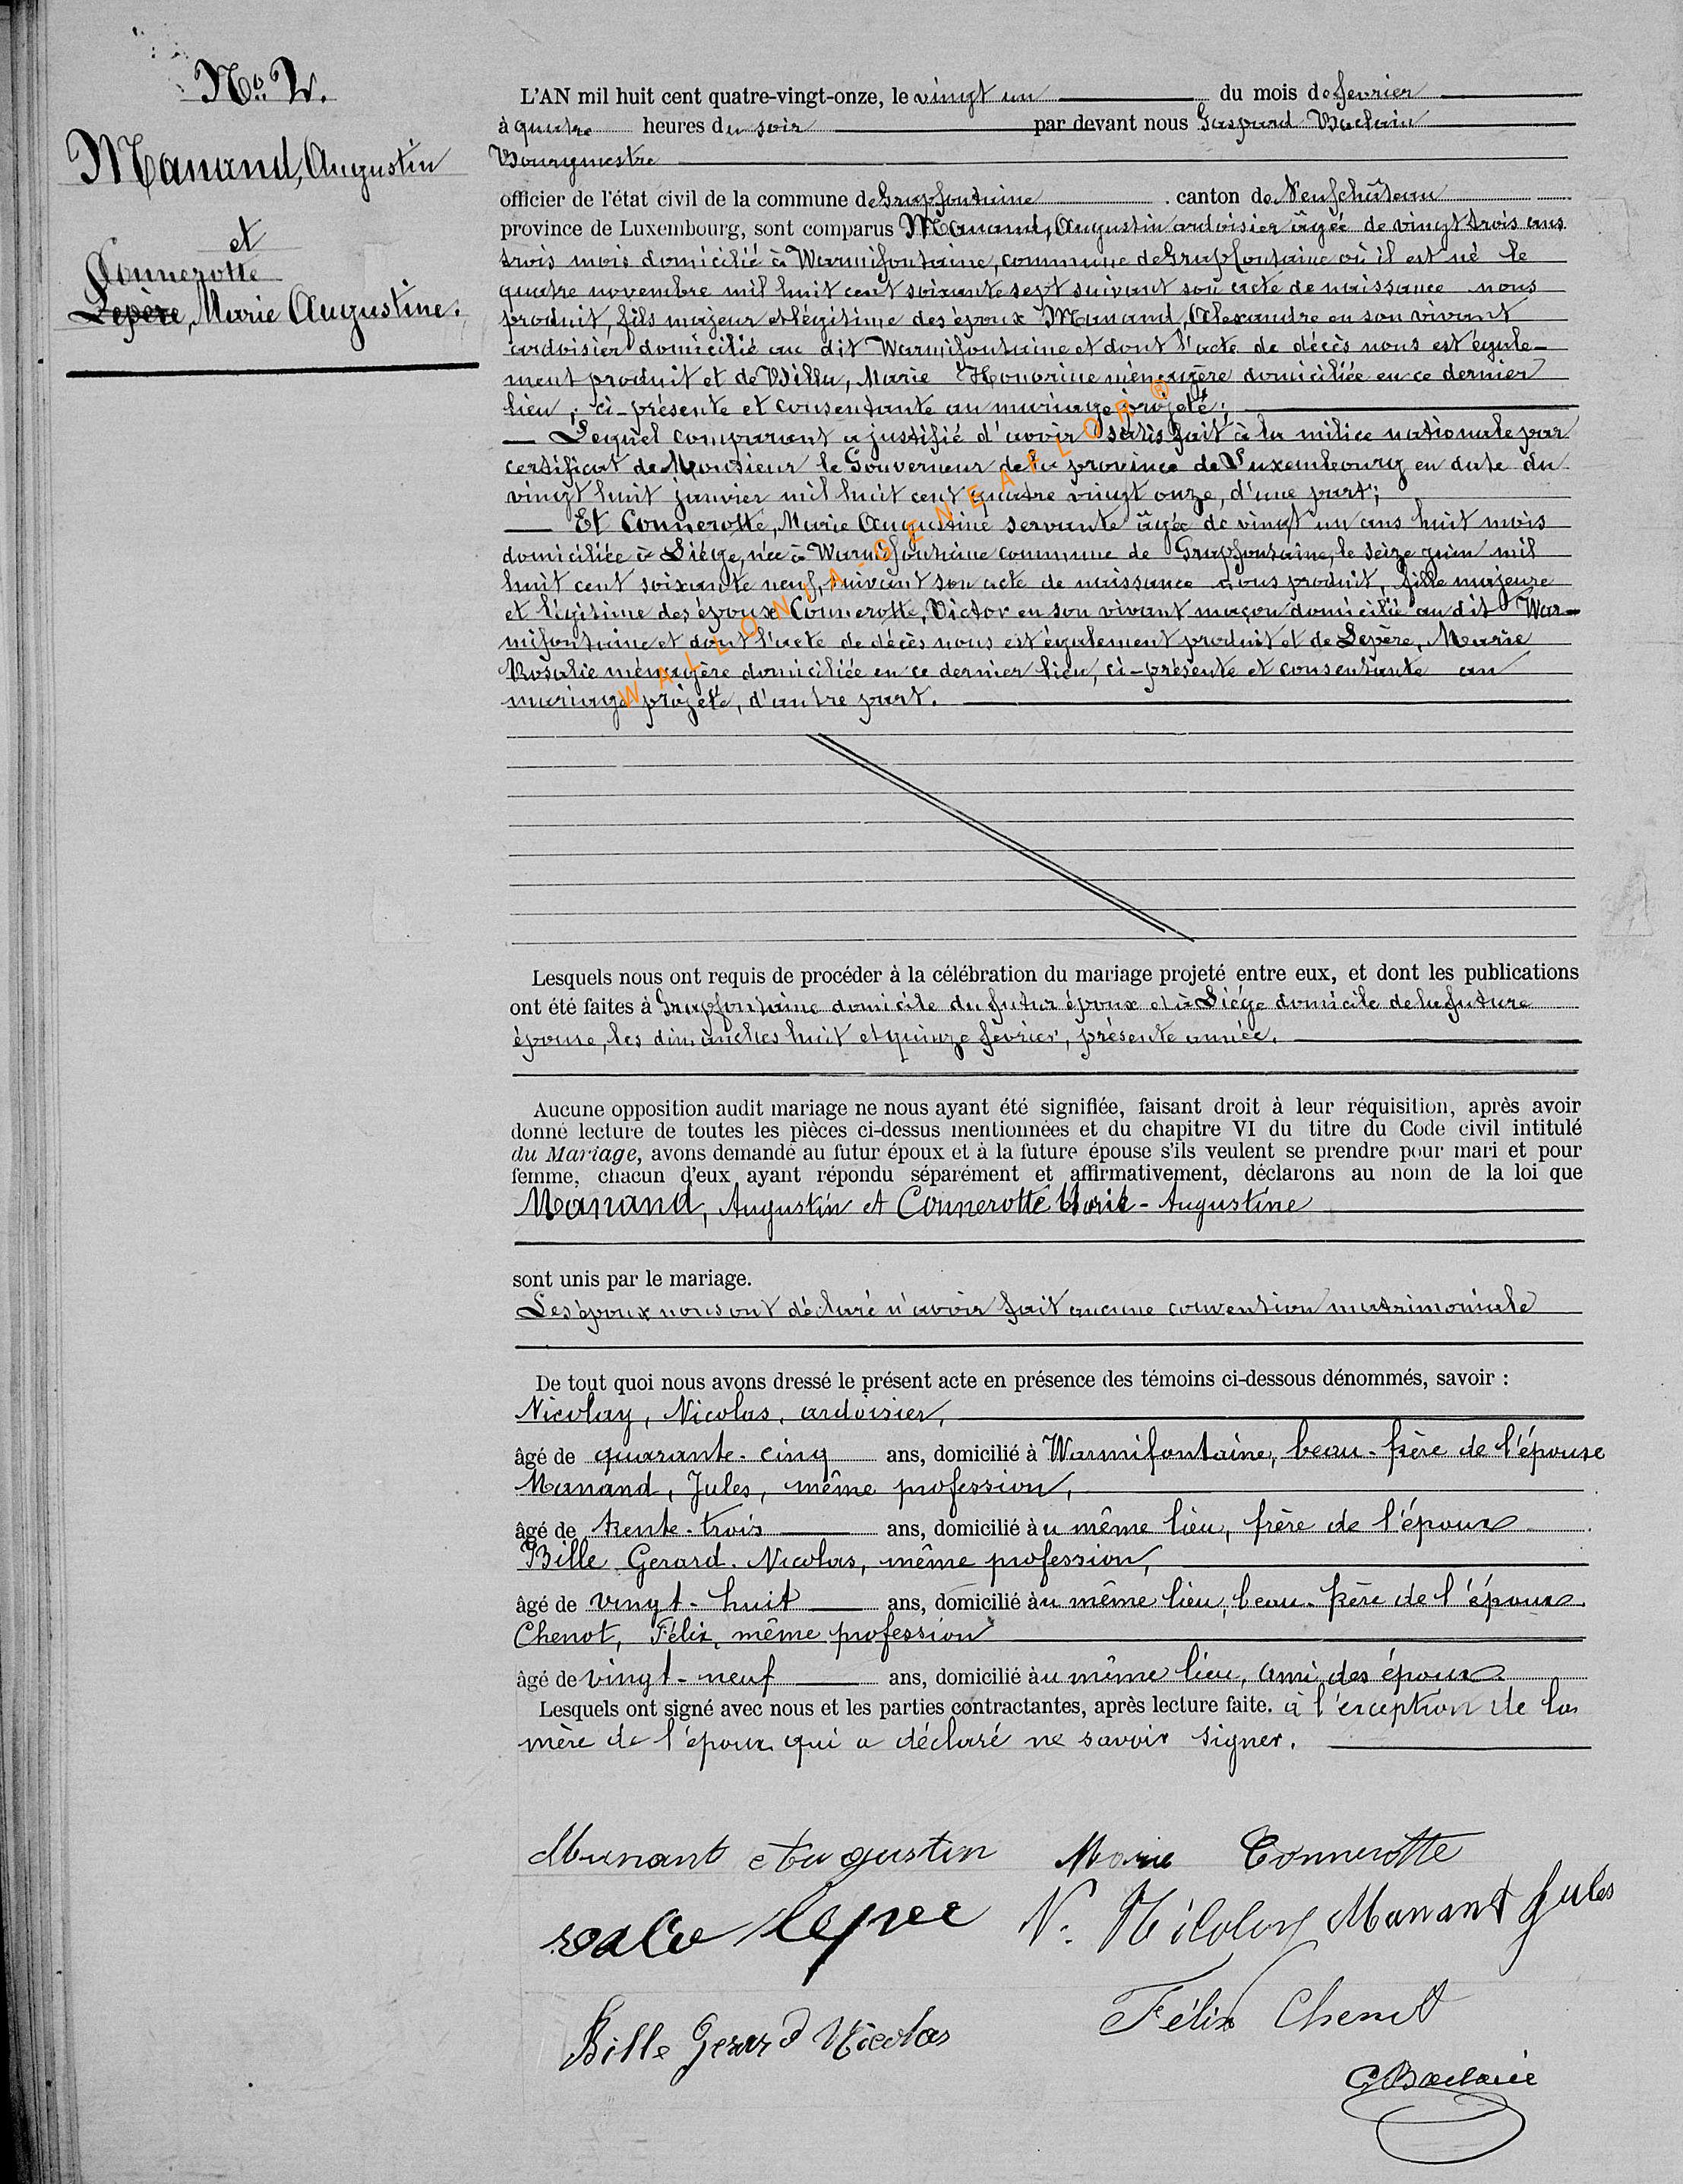 No. 2.
Manand, Augustin
et
Connerotte
Lepère, Marie Augustine.
L'AN mil huit cent quatre-vingt-onze, le vingt un du mois de février
à quatre heures du soir par devant nous Gaspard Baclain
Bourgmestre
officier de l'état civil de la commune de Grapfontaine canton de Neufchâteau
province de Luxembourg, sont comparus Manand, Augustin ardoisier âgée de vingt trois ans
trois mois domicilié à Warmifontaine, commune de Grapfontaine où il est né le
quatre novembre mil huit cent soixante sept suivant son acte de naissance nous
produit, fils majeur et légitime des époux Manand, Alexandre en son vivant
ardoisier domicilié au dit Warmifontaine et dont l'acte de décès nous est égale-
ment produit et de Villa, Marie Honorine ménagère domiciliée en ce dernier
lieu, ci-présente et consentante au mariage projeté;
— Lequel comparant a justifié d'avoir satisfait à la milice nationale par
certificat de Monsieur le Gouverneur de la province de Luxembourg en date du
vingt huit janvier mil huit cent quatre vingt onze, d'une part;
— Et Connerotte, Marie Augustine servante âgée de vingt un ans huit mois
domiciliée à Liége, née à Warmifontaine commune de Grapfontaine, le seize juin mil
huit cent soixante neuf, suivant son acte de naissance nous produit, fille majeure
et légitime des époux Connerotte, Victor en son vivant maçon domicilié au dit War-
mifontaine et dont l'acte de décès nous est également produit et de Lepère, Marie
Rosalie ménagère domiciliée en ce dernier lieu, ci-présente et consentante au
mariage projeté, d'autre part.
WALLONIA-GENEAFLOR ®
Lesquels nous ont requis de procéder à la célébration du mariage projeté entre eux, et dont les publications
ont été faites à Grapfontaine domicile du futur époux et à Liége domicile de la future
épouse, les dimanches huit et quinze février, présente année.
Aucune opposition audit mariage ne nous ayant été signifiée, faisant droit à leur réquisition, après avoir
donné lecture de toutes les pièces ci-dessus mentionnées et du chapitre VI du titre du Code civil intitulé
du Mariage, avons demandé au futur époux et à la future épouse s'ils veulent se prendre pour mari et pour
femme, chacun d'eux ayant répondu séparément et affirmativement, déclarons au nom de la loi que
Manand, Augustin et Connerotte Marie-Augustine
sont unis par le mariage.
Les époux nous ont déclaré n'avoir fait aucune convention matrimoniale
De tout quoi nous avons dressé le présent acte en présence des témoins ci-dessous dénommés, savoir :
Nicolay, Nicolas, ardoisier,
âgé de quarante-cinq ans, domicilié à Warmifontaine, beau-frère de l'épouse
Manand, Jules, même profession,
âgé de trente-trois ans, domicilié àu même lieu, frère de l'époux
Bille Gerard-Nicolas, même profession,
âgé de vingt-huit ans, domicilié àu même lieu, beau-frère de l'époux.
Chenot, Félix, même profession
âgé de vingt-neuf ans, domicilié àu même lieu, ami des époux.
Lesquels ont signé avec nous et les parties contractantes, après lecture faite. à l'exception de la
mère de l'époux qui a déclaré ne savoir signer.
Manant Augustin Marie Connerotte
lepere N. Nicolay Manant Jules
Bille Gerard Nicolas Félix Chenot
G Baclain